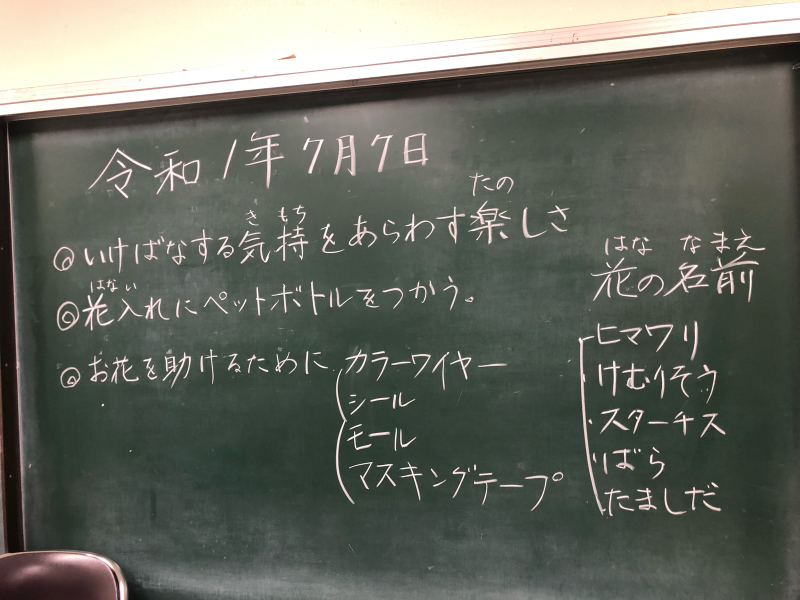 令和1年7月7日
◎いけばなする気持をあらわす楽しさ
き もち たの
◎花入れにペットボトルをつかう。
はない
◎お花を助けるために
カラーワイヤー
シール
モール
マスキングテープ
はな なまえ
花の名前
ヒマワリ
けむりそう
スターチス
ばら
たましだ